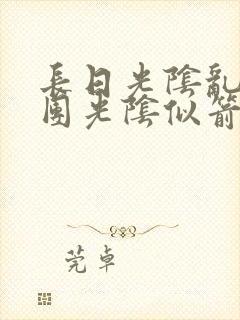 長日光陰亂
園光陰似箭
莞卓